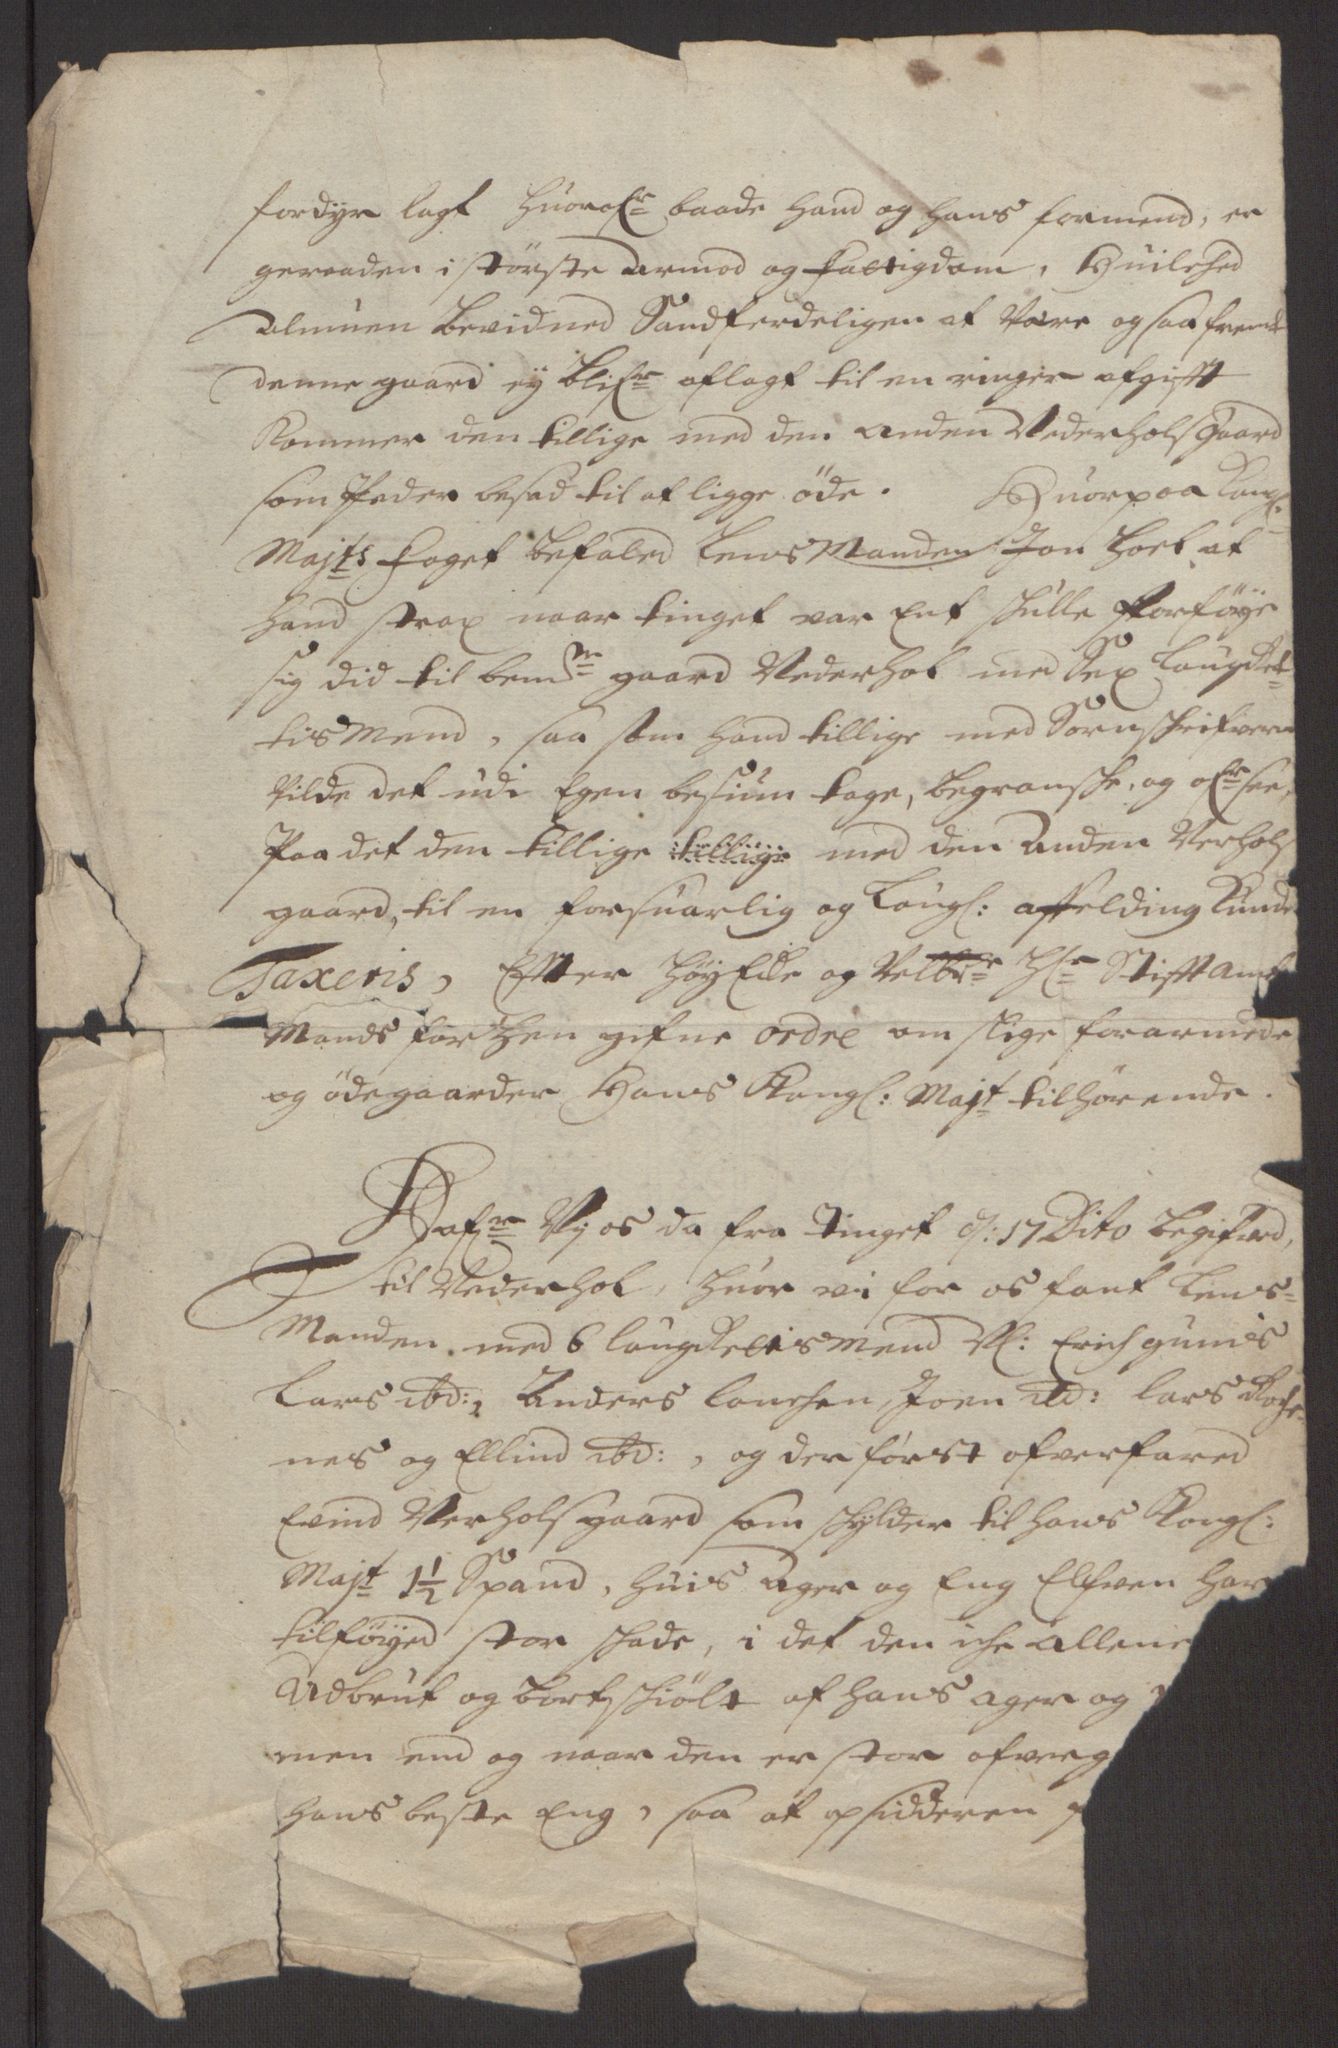 fordyr lagt huorofr baade hand og hans formend, er
geraaden i største Armod og fattigdom, Huilched
Almuen bevidned Sandferdeligen at Være og saa fremt
denne gaard ej blifr aflagt til en ringer afgifft
Kommer den tillige med den anden Vederholsgaard
som Peder besad til at ligge øde. Huorpaa Kongl:
Majts foget befaled LensManden Jon hoel at
hand strax naar tinget var Ent schulle forføye
sig did til bemte gaard Vederhol med Sex Laugret-
tis Mend, saa som hand tillige med Sornschrifveren
Vilde det udi Egen besium tage, begransche, og ofrsee,
Paa det den tillige tillige med den Anden Verhols
gaard, til en forsuarlig og Laugl: affelding Kunde
Taxeris, Effter høyEdle og Velbr Hr StifftAmt
Mands forhen gifne ordre om slige forarmede
og ødegaarder Hans Kongl: Majt tilhørende.
Hafr Vj os da fra Tinget d: 17 Dito begifved,
til Vederhol, huor vi for os fant Lens-
Manden med 6 laugrettis Mend Nl: Erich gunnes
Lars ibd:, Anders lonchen, Joen ibd: lars Roche-
nes og Ellind ibd:, og der først ofverfared
Evind Verhols gaard som schylder til hans Kongl:
Majt 1 1/2 Spand, huis Ager og Eng Elfven har
tilføyed stor schade, i det den iche allene
Udbrut og bortschiølt af hans ager og
men end og naar den er stor ofverg
hans beste Eng, saa at opsidderen